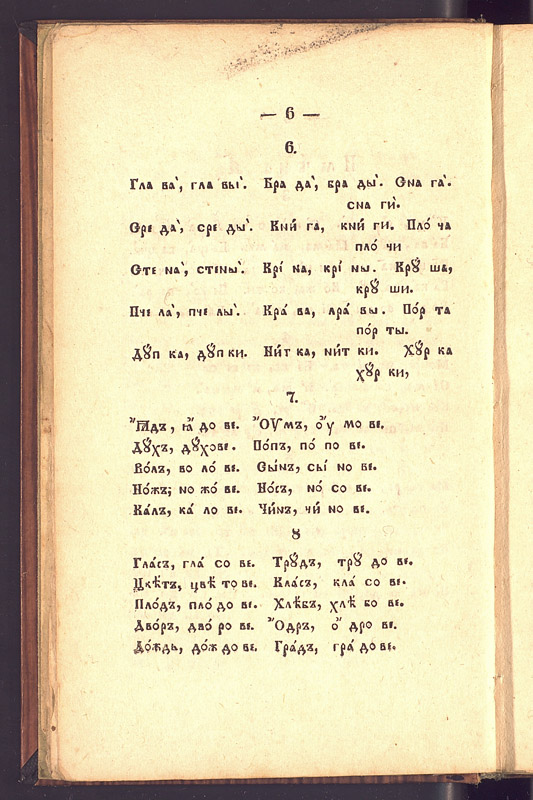 — 6 —
6.
Гла ва̀, гла вы̀. Бра да̀, бра ды̀. Сна га̀.
сна гѝ.
Сре да̀, сре ды̀. Кни́ га, кни́ ги. Пло́ ча
пло́ чи
Сте на̀, стены̀. Крі́ на, крі́ ны. Крꙋ́ ша,
крꙋ́ ши.
Пче ла̀, пче лы̀. Кра́ ва, лра́ вы. По́р та
по́р ты.
Дꙋ́п ка, дꙋ́п ки. Ни́т ка, ни́т ки. Хꙋ́р ка
хꙋ́р ки,
7.
Ꙗ҆́дъ, ꙗ҆́ до ве. Ѻу҆́мъ, оу҆́ мо ве.
Дꙋ́хъ, дꙋ́хове. По́пъ, по́ по ве.
Во́лъ, во ло́ ве. Сы́нъ, сы́ но ве.
Но́жъ; но жо́ ве. Но́съ, но́ со ве.
Ка́лъ, ка́ ло ве. Чи́нъ, чи́ но ве.
8
Гла́съ, гла́ со ве. Трꙋ́дъ, трꙋ́ до ве.
Цвѣ́тъ, цвѣ́ то ве. Кла́съ, кла́ со ве.
Пло́дъ, пло́ до ве. Хлѣ́бъ, хлѣ́ бо ве.
Дво́ръ, дво́ ро ве. Ѻ҆́дръ, о҆́ дро ве.
До́ждь, до́ж до ве. Гра́дъ, гра́ до ве.